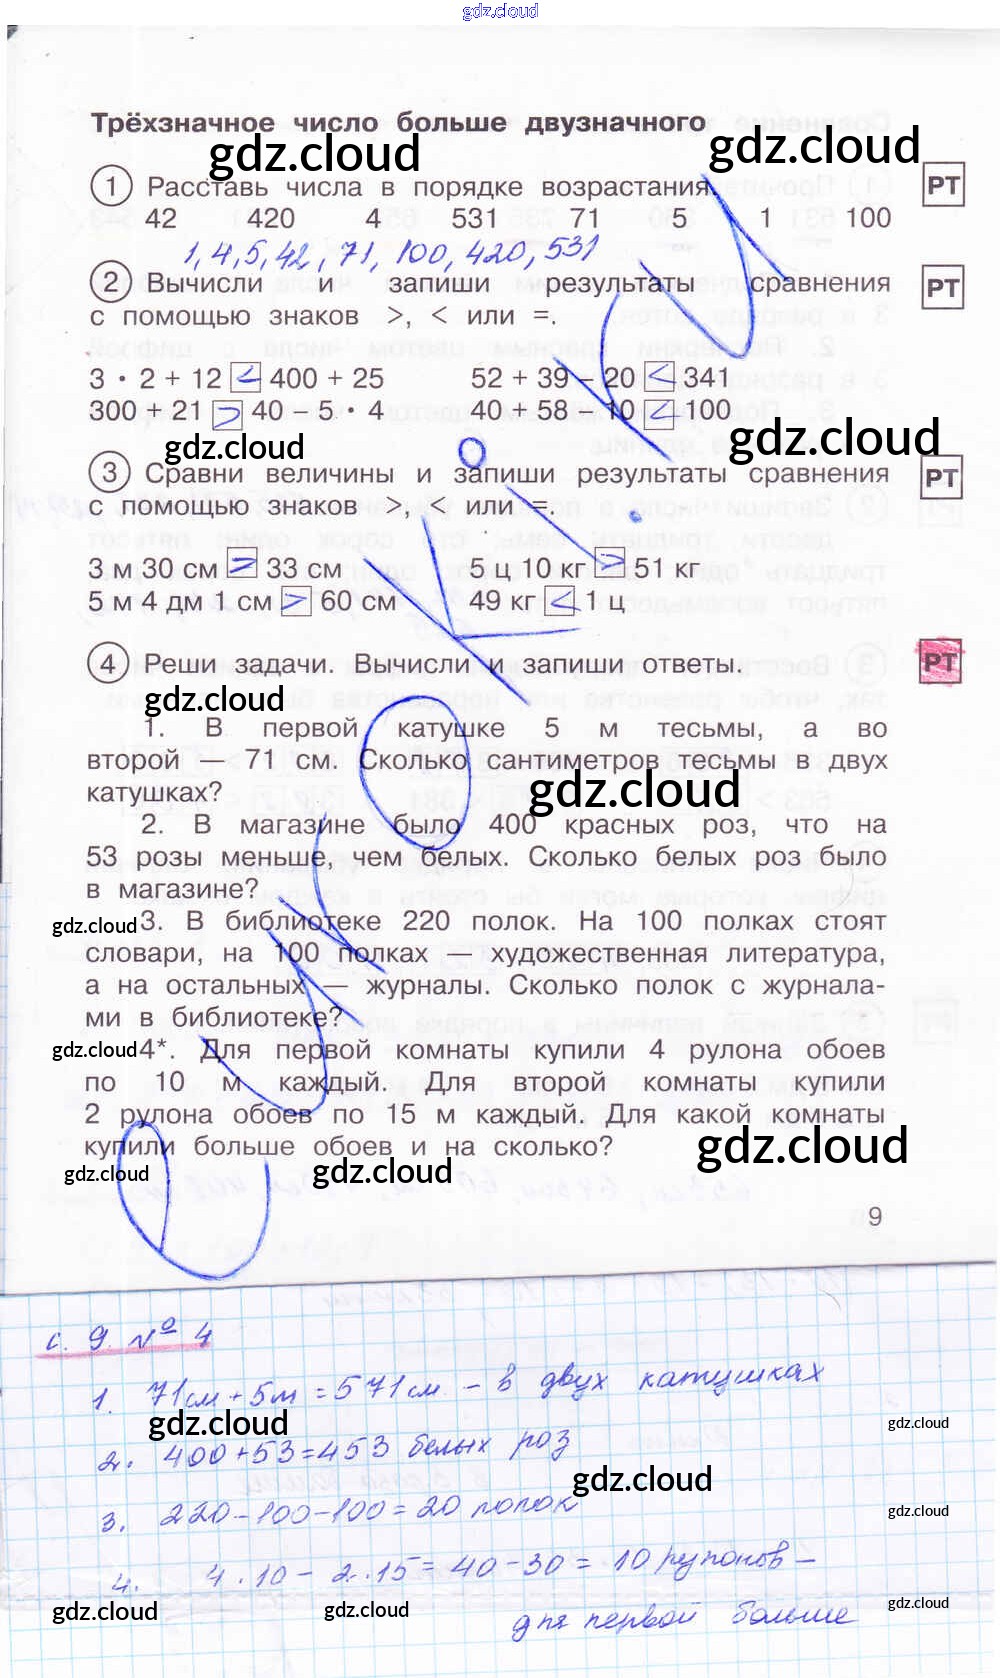 gdz.cloud
Трёхзначное число больше двузначного
gdz.cloud
gdz.cloud
1 Расставь числа в порядке возрастания. РТ
42 420 4 531 71 5 1 100
1, 4, 5, 42, 71, 100, 420, 531
2 Вычисли и запиши результаты сравнения РТ
с помощью знаков >, < или =.
3 · 2 + 12 < 400 + 25 52 + 39 – 20 < 341
300 + 21 > 40 – 5 · 4 40 + 58 – 10 < 100
gdz.cloud
gdz.cloud
3 Сравни величины и запиши результаты сравнения РТ
с помощью знаков >, < или =.
3 м 30 см > 33 см 5 ц 10 кг > 51 кг
5 м 4 дм 1 см > 60 см 49 кг < 1 ц
4 Реши задачи. Вычисли и запиши ответы. РТ
gdz.cloud
1. В первой катушке 5 м тесьмы, а во
второй — 71 см. Сколько сантиметров тесьмы в двух
катушках?
gdz.cloud
2. В магазине было 400 красных роз, что на
53 розы меньше, чем белых. Сколько белых роз было
в магазине?
gdz.cloud
3. В библиотеке 220 полок. На 100 полках стоят
словари, на 100 полках — художественная литература,
а на остальных — журналы. Сколько полок с журнала-
ми в библиотеке?
gdz.cloud
4*. Для первой комнаты купили 4 рулона обоев
по 10 м каждый. Для второй комнаты купили
2 рулона обоев по 15 м каждый. Для какой комнаты
купили больше обоев и на сколько?
gdz.cloud
gdz.cloud
gdz.cloud
9
с. 9. № 4
1. 71см + 5м = 571см – в двух катушках
gdz.cloud
gdz.cloud
2. 400+53=453 белых роз
gdz.cloud
3. 220-100-100=20 полок
gdz.cloud
4. 4·10 - 2·15=40-30= 10 рулонов –
gdz.cloud
gdz.cloud
gdz.cloud
для первой больше